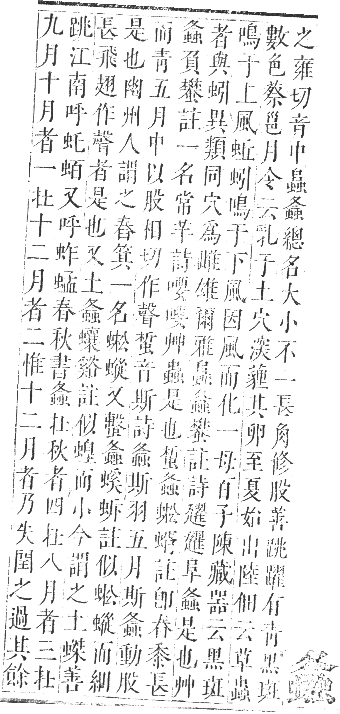 之雍切音中𧒂螽總名大小不一長角修股善跳躍有青黑斑
數色蔡邕月令云乳于土穴深薶其卵至夏始出陸佃云草蟲
鳴于上風蚯蚓鳴于下風因風而化一母百子陳藏器云黑斑
者與蚓異類同穴為雌雄爾雅𧒂螽蠜註詩趯趯阜螽是也艸
螽負蠜註一名常羊詩喓喓艸蟲是也蜤螽蜙蝑註即舂黍長
而青五月中以股相切作聲蜤音斯詩螽斯羽五月斯螽動股
是也幽州人謂之舂箕一名蜙𧐍又蟿螽螇蚸註似蜙𧐍而細
長飛翅作聲者是也又土螽蠰谿註似蝗而小今謂之土蠂善
跳江南呼虴蛨又呼蚱蜢春秋書螽在秋者四在八月者三在
九月十月者一在十二月者二惟十二月者乃失閏之過其餘